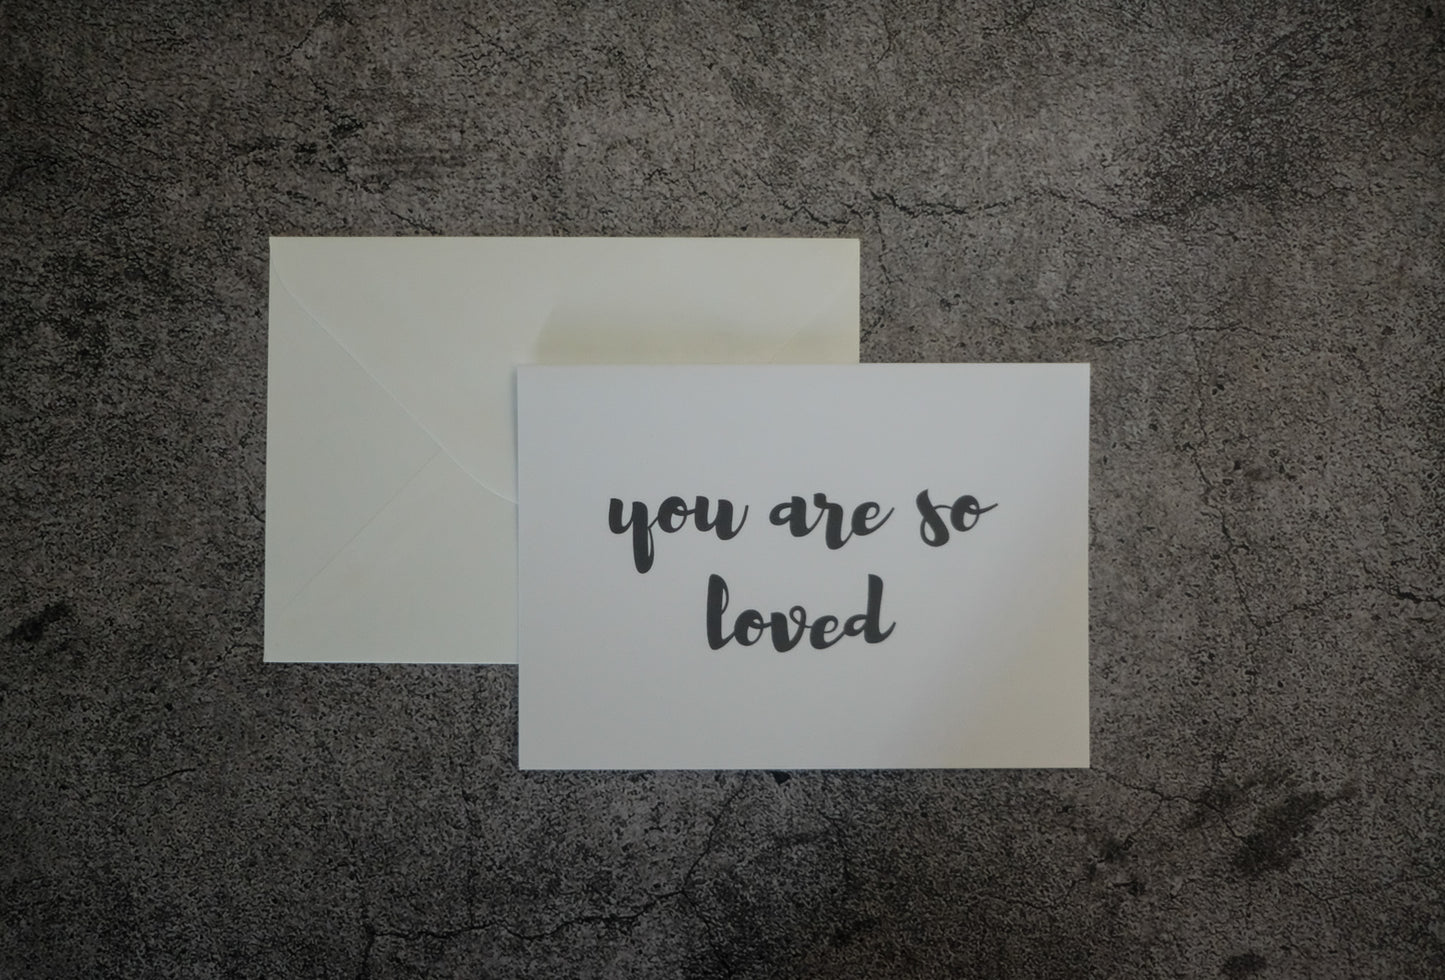 you are so
loved